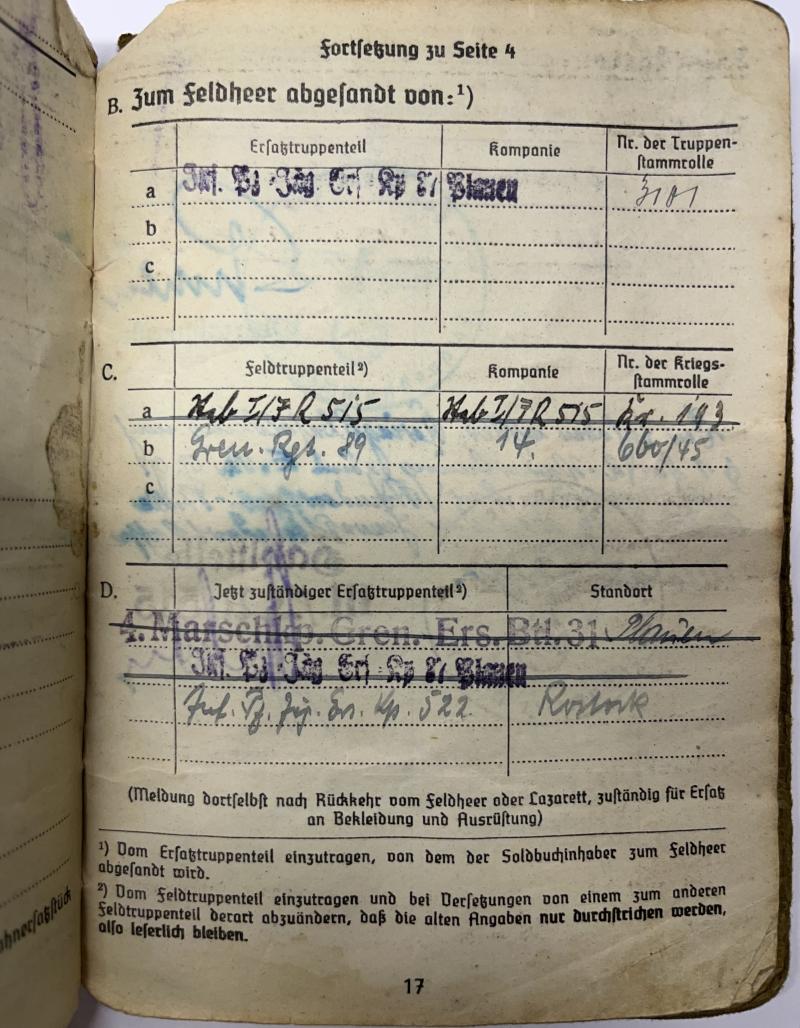 Fortsetzung zu Seite 4
B. Zum Feldheer abgesandt von:¹)
Ersatztruppenteil Kompanie Nr. der Truppen-
stammrolle
a Inf. Pz Jäg Ers Kp 87 Plauen 3101
b
c
C. Feldtruppenteil²) Kompanie Nr. der Kriegs-
stammrolle
a Stab I/J R 515 Stab I/J R 515 193
b Gren. Rgt. 89 14. 660/45
c
D. Jetzt zuständiger Ersatztruppenteil²) Standort
4. Marschkp. Gren. Ers. Btl. 31 Plauen
Inf. Pz Jäg Ers Kp 87 Plauen
Inf. Pz. Jäg. Ers. Kp. 522 Rostock
(Meldung dortselbst nach Rückkehr vom Feldheer oder Lazarett, zuständig für Ersatz
an Bekleidung und Ausrüstung)
¹) Vom Ersatztruppenteil einzutragen, von dem der Soldbuchinhaber zum Feldheer
abgesandt wird.
²) Vom Feldtruppenteil einzutragen und bei Versetzungen von einem zum anderen
Feldtruppenteil derart abzuändern, daß die alten Angaben nur durchstrichen werden,
also leserlich bleiben.
17